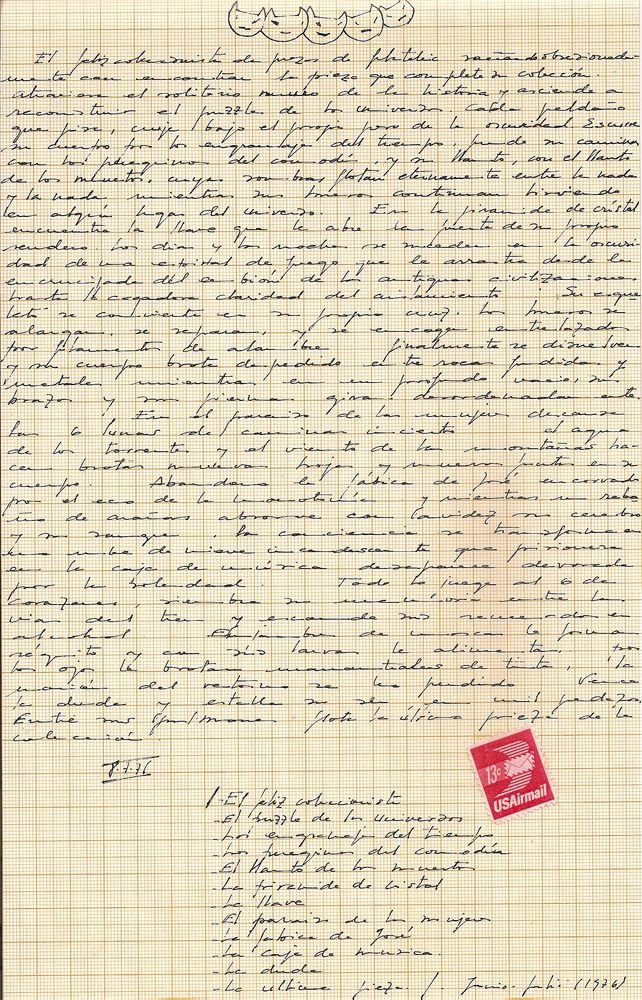 El feliz coleccionista de piezas de filatelia sueña obsesionada-
mente con encontrar la pieza que complete su colección.
Atraviesa el solitario museo de la historia y asciende a
reconstruir el puzzle de los universos. Cada peldaño
que pisa, cruje bajo el propio peso de la oscuridad. Escucha
su cuento por los engranajes del tiempo, pende su camino
con los peregrinos del comodín, y su llanto, con el llanto
de los muertos, cuyas sombras flotan eternamente entre la nada
y la nada, mientras sus huesos continuan hirviendo
en algún lugar del universo. En la piramide de cristal
encuentra la llave que le abre la puerta de su propio
sendero. Los dias y las noches se suceden en la oscuri-
dad de una espiral de fuego que le arrastra desde la
encrucijada del de las antiguas civilizaciones
hasta la cegadora claridad del aislamiento. Su esque-
leto se convierte en su propia cruz. Los huesos se
alargan, se separan, y se encogen entrelazados
por filamentos de alambre finalmente se disuelven
y su cuerpo brota despedido entre rocas fundidas y
metales mientras en un profundo vacio, sus
brazos y sus piernas giran desordenadamente.
En el paraiso de las mujeres descansa
las 6 lunas del camino incierto el agua
de los torrentes y el viento de las montañas ha-
cen brotar nuevas hojas y nuevos frutos en su
cuerpo. Abandona la fábrica de José encorvado
por el eco de la monotonía y mientras un reba-
ño de arañas absorve con avidez su cerebro
y su sangre, la conciencia se transforma en
una nube de nieve incandescente que prisionera
en la caja de música desaparece devorada
por la soledad. Todo lo juega al 6 de
corazones, siembra su memoria entre las
vias del tren y esconde sus recuerdos en
alcohol. Enjambre de moscas le forma
séquito y con sus larvas le alimenta. Por
los ojos le brotan manantiales de tinta, la
del se ha perdido. Vence
la duda y estalla su ser en mil pedazos.
Entre sus flota la última pieza de la
colección
8.7.76
13c
USAirmail
1-El feliz coleccionista
-El puzzle de los universos
-Los engranajes del tiempo
-Los peregrinos del comodín
-El llanto de los muertos
-La piramide de cristal
-La llave
-El paraiso de las mujeres
-La fabrica de José
-La caja de musica.
-La duda
-La ultima pieza. /. Junio-Julio (1976)